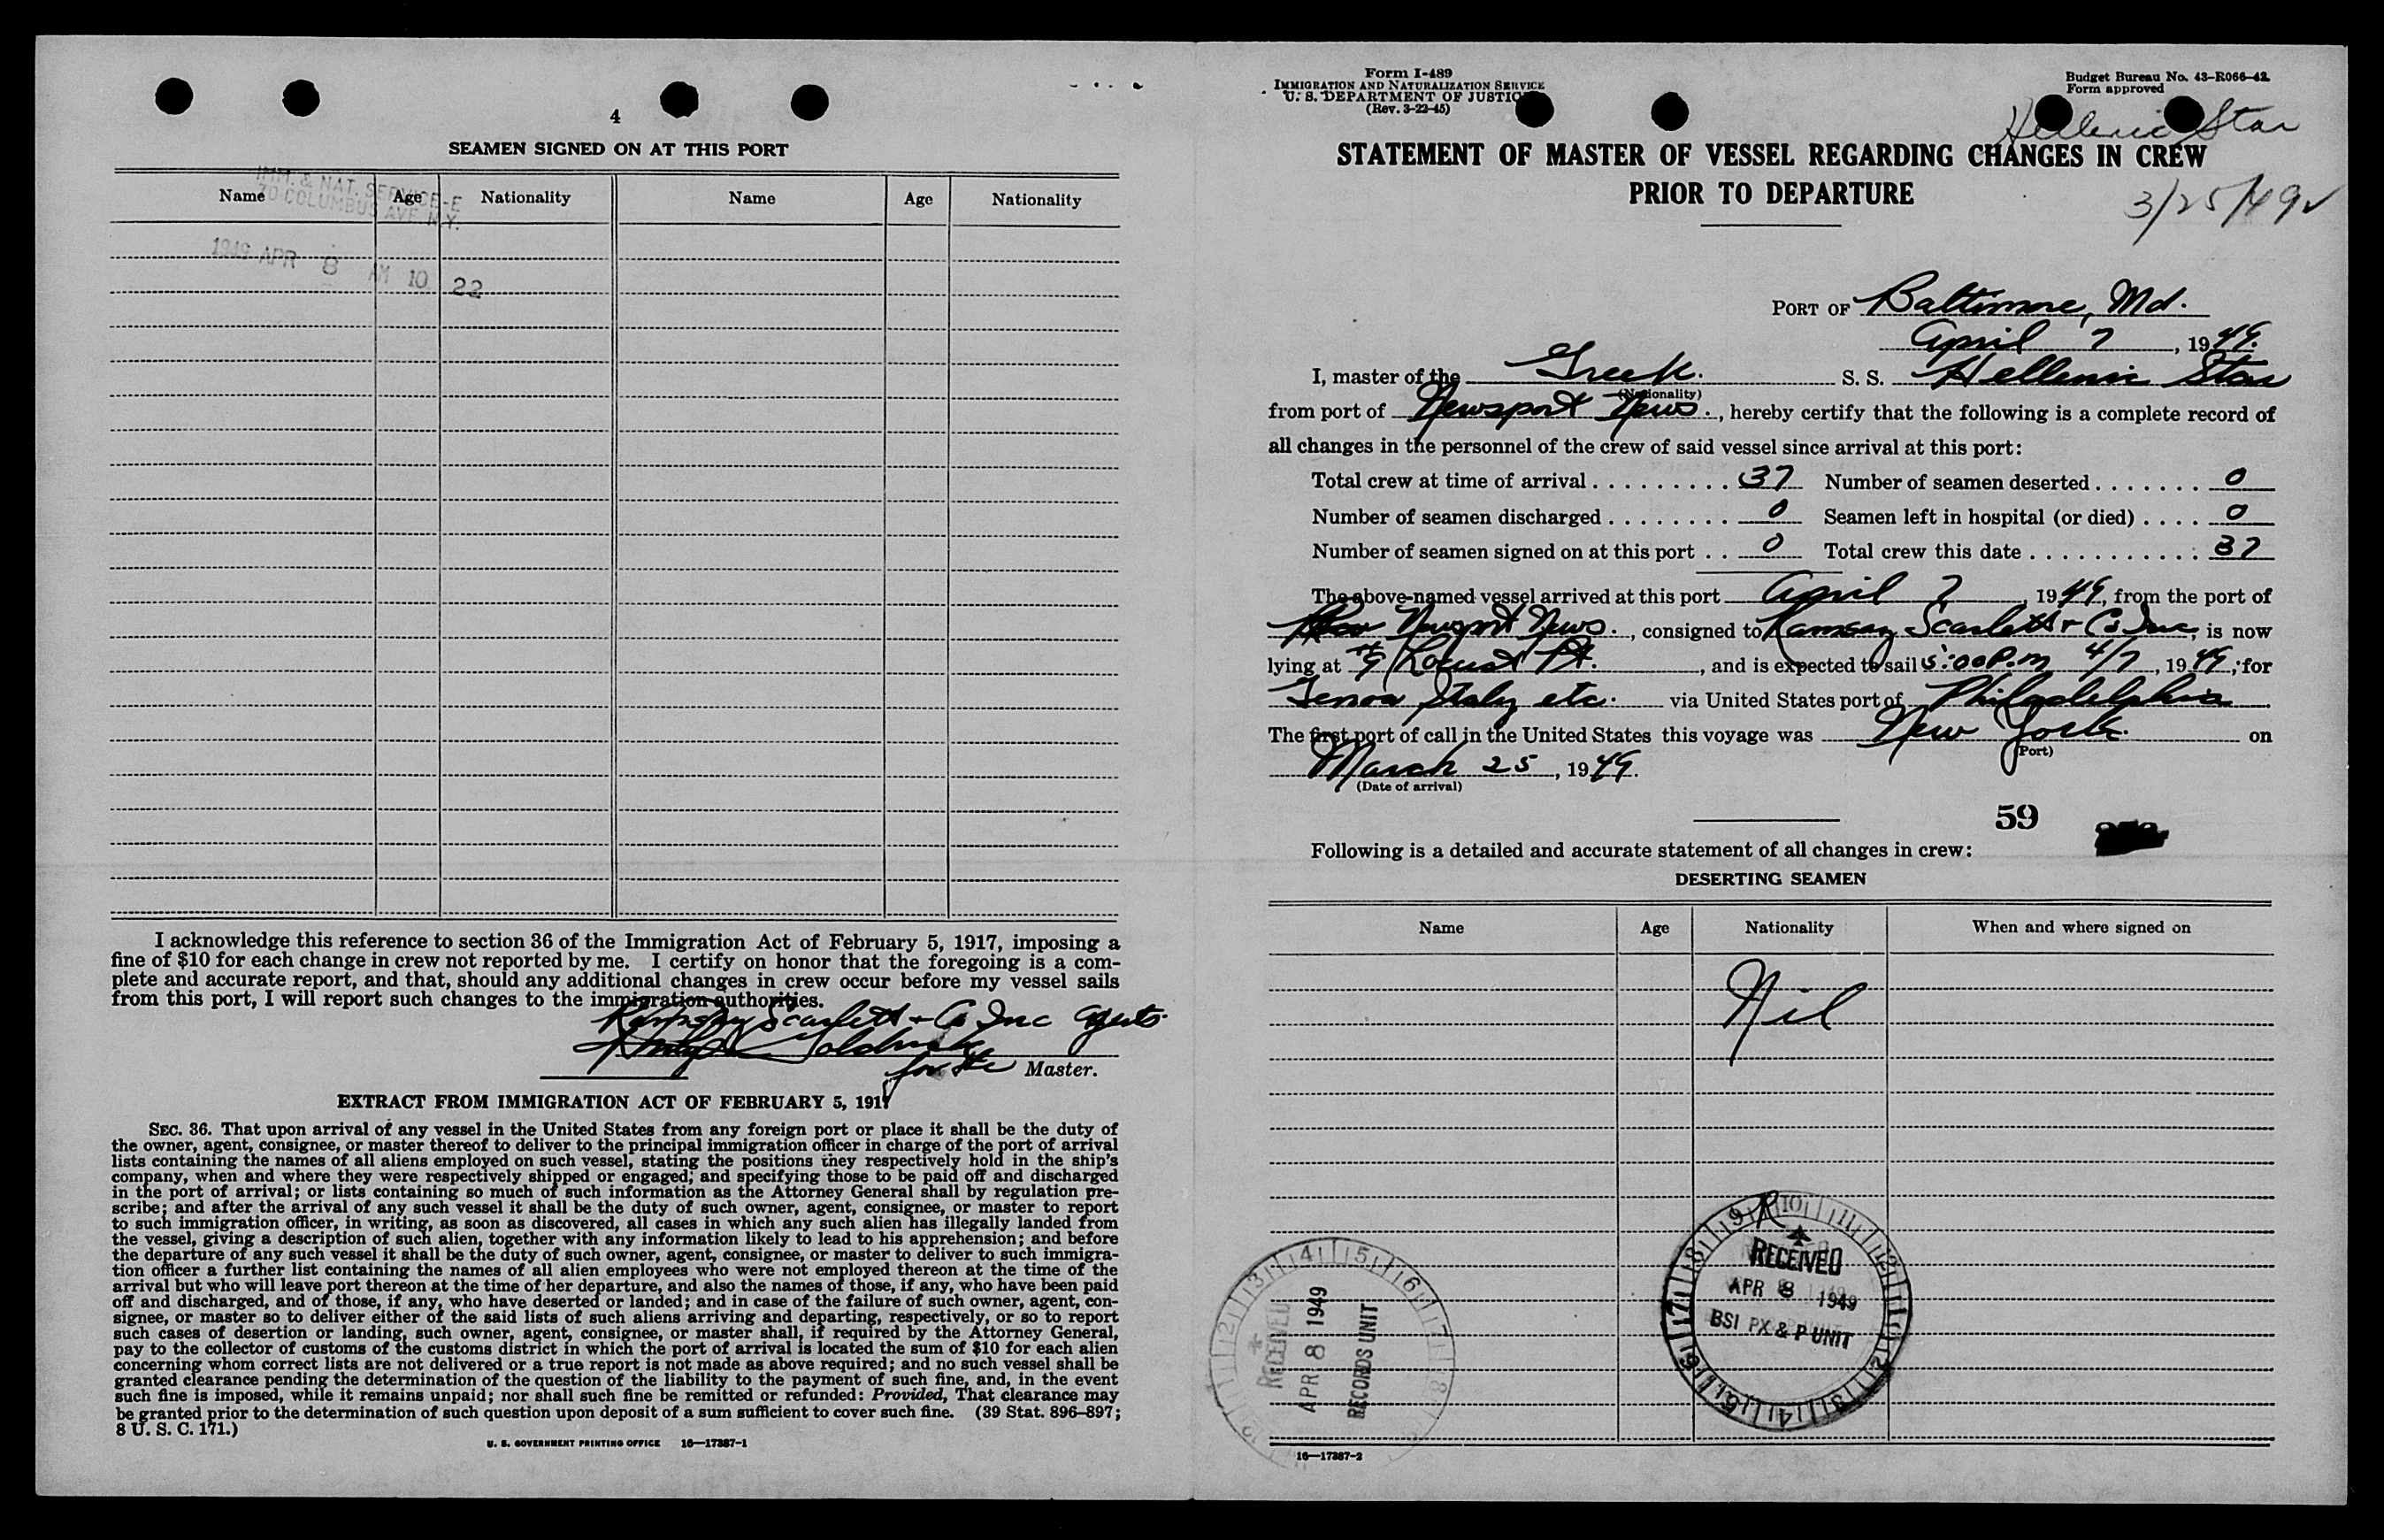 4
SEAMEN SIGNED ON AT THIS PORT
IMM. & NAT. SERVICE-E
70 COLUMBUS AVE N.Y.
Name Age Nationality Name Age Nationality
1949 APR 8 AM 10 22
I acknowledge this reference to section 36 of the Immigration Act of February 5, 1917, imposing a
fine of $10 for each change in crew not reported by me. I certify on honor that the foregoing is a com-
plete and accurate report, and that, should any additional changes in crew occur before my vessel sails
from this port, I will report such changes to the immigration authorities.
Ramsay Scarlett + Co Inc Agents.
for the Master.
EXTRACT FROM IMMIGRATION ACT OF FEBRUARY 5, 1917
SEC. 36. That upon arrival of any vessel in the United States from any foreign port or place it shall be the duty of
the owner, agent, consignee, or master thereof to deliver to the principal immigration officer in charge of the port of arrival
lists containing the names of all aliens employed on such vessel, stating the positions they respectively hold in the ship's
company, when and where they were respectively shipped or engaged, and specifying those to be paid off and discharged
in the port of arrival; or lists containing so much of such information as the Attorney General shall by regulation pre-
scribe; and after the arrival of any such vessel it shall be the duty of such owner, agent, consignee, or master to report
to such immigration officer, in writing, as soon as discovered, all cases in which any such alien has illegally landed from
the vessel, giving a description of such alien, together with any information likely to lead to his apprehension; and before
the departure of any such vessel it shall be the duty of such owner, agent, consignee, or master to deliver to such immigra-
tion officer a further list containing the names of all alien employees who were not employed thereon at the time of the
arrival but who will leave port thereon at the time of her departure, and also the names of those, if any, who have been paid
off and discharged, and of those, if any, who have deserted or landed; and in case of the failure of such owner, agent, con-
signee, or master so to deliver either of the said lists of such aliens arriving and departing, respectively, or so to report
such cases of desertion or landing, such owner, agent, consignee, or master shall, if required by the Attorney General,
pay to the collector of customs of the customs district in which the port of arrival is located the sum of $10 for each alien
concerning whom correct lists are not delivered or a true report is not made as above required; and no such vessel shall be
granted clearance pending the determination of the question of the liability to the payment of such fine, and, in the event
such fine is imposed, while it remains unpaid; nor shall such fine be remitted or refunded: Provided, That clearance may
be granted prior to the determination of such question upon deposit of a sum sufficient to cover such fine. (39 Stat. 896-897;
8 U. S. C. 171.)
U. S. GOVERNMENT PRINTING OFFICE 16—17387-1
Form I-489
IMMIGRATION AND NATURALIZATION SERVICE
U. S. DEPARTMENT OF JUSTICE
(Rev. 3-22-45)
Budget Bureau No. 43-R066-42
Form approved
Hellenic Star
STATEMENT OF MASTER OF VESSEL REGARDING CHANGES IN CREW
PRIOR TO DEPARTURE
3/25/49
PORT OF Baltimore, Md.
April 7, 1949.
I, master of the Greek. S. S. Hellenic Star
(Nationality)
from port of Newsport News., hereby certify that the following is a complete record of
all changes in the personnel of the crew of said vessel since arrival at this port:
Total crew at time of arrival 37 Number of seamen deserted 0
Number of seamen discharged 0 Seamen left in hospital (or died) 0
Number of seamen signed on at this port 0 Total crew this date 37
The above-named vessel arrived at this port April 7, 1949, from the port of
Newsport News., consigned to Ramsay Scarlett + Co Inc, is now
lying at Locust Pt., and is expected to sail 5:00 P.m 4/7, 1949, for
Genoa Italy etc. via United States port of Philadelphia
The first port of call in the United States this voyage was New York. on
(Port)
March 25, 1949.
(Date of arrival)
59
Following is a detailed and accurate statement of all changes in crew:
DESERTING SEAMEN
Name Age Nationality When and where signed on
Nil
RECEIVED
APR 8 1949
RECORDS UNIT
RECEIVED
APR 8 1949
BSI PX & P UNIT
16—17387-2